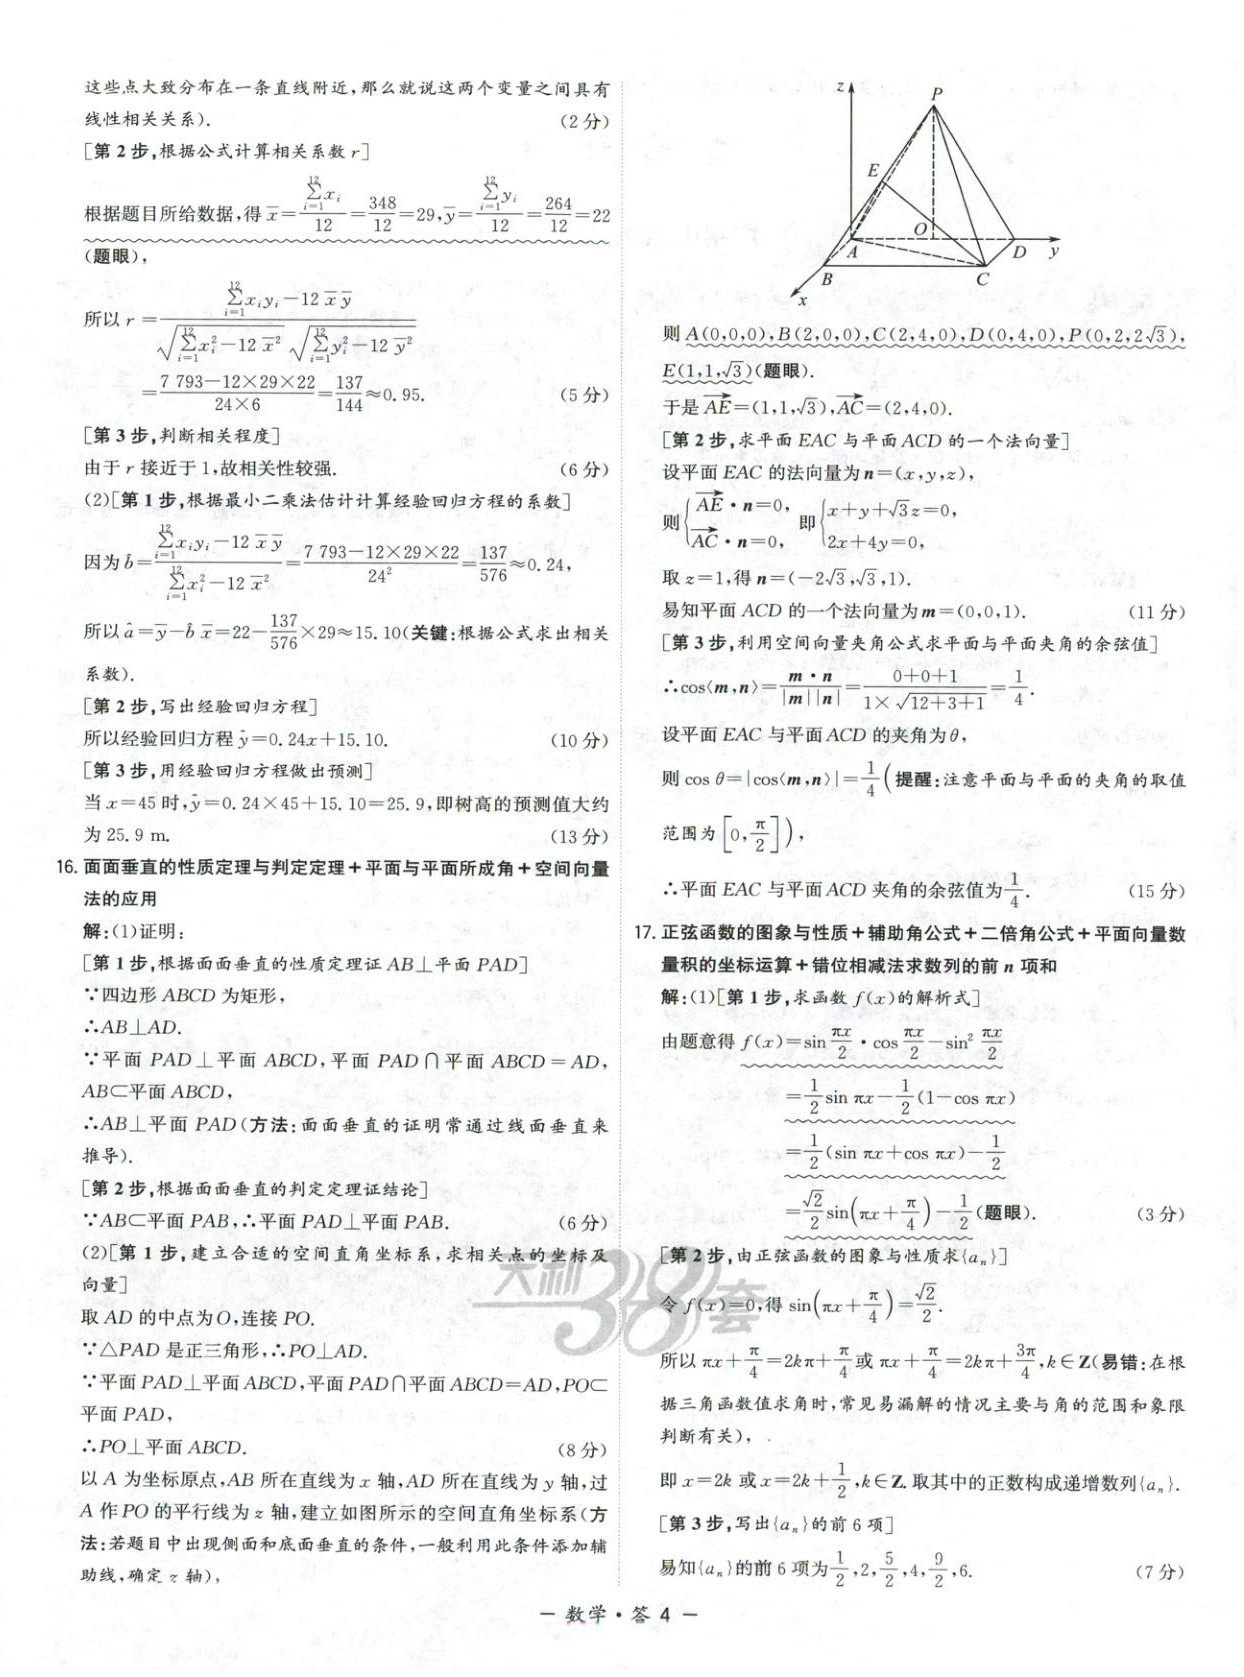 这些点大致分布在一条直线附近,那么就说这两个变量之间具有
线性相关关系). (2分)
[第2步,根据公式计算相关系数r]
根据题目所给数据,得x̄=∑_{i=1}^{12}x_i/12=348/12=29,ȳ=∑_{i=1}^{12}y_i/12=264/12=22
(题眼),
所以r=(∑_{i=1}^{12}x_iy_i-12x̄ȳ)/(√(∑_{i=1}^{12}x_i²-12x̄²)√(∑_{i=1}^{12}y_i²-12ȳ²))
=(7 793-12×29×22)/(24×6)=137/144≈0.95. (5分)
[第3步,判断相关程度]
由于r接近于1,故相关性较强. (6分)
(2)[第1步,根据最小二乘法估计计算经验回归方程的系数]
因为b̂=(∑_{i=1}^{12}x_iy_i-12x̄ȳ)/(∑_{i=1}^{12}x_i²-12x̄²)=(7 793-12×29×22)/24²=137/576≈0.24,
所以â=ȳ-b̂x̄=22-137/576×29≈15.10(关键:根据公式求出相关
系数).
[第2步,写出经验回归方程]
所以经验回归方程ŷ=0.24x+15.10. (10分)
[第3步,用经验回归方程做出预测]
当x=45时,ŷ=0.24×45+15.10=25.9,即树高的预测值大约
为25.9 m. (13分)
16.面面垂直的性质定理与判定定理+平面与平面所成角+空间向量
法的应用
解:(1)证明:
[第1步,根据面面垂直的性质定理证AB⊥平面PAD]
∵四边形ABCD为矩形,
∴AB⊥AD.
∵平面PAD⊥平面ABCD,平面PAD∩平面ABCD=AD,
AB⊂平面ABCD,
∴AB⊥平面PAD(方法:面面垂直的证明常通过线面垂直来
推导).
[第2步,根据面面垂直的判定定理证结论]
∵AB⊂平面PAB,∴平面PAD⊥平面PAB. (6分)
(2)[第1步,建立合适的空间直角坐标系,求相关点的坐标及
向量]
取AD的中点为O,连接PO.
∵△PAD是正三角形,∴PO⊥AD.
∵平面PAD⊥平面ABCD,平面PAD∩平面ABCD=AD,PO⊂
平面PAD,
∴PO⊥平面ABCD. (8分)
以A为坐标原点,AB所在直线为x轴,AD所在直线为y轴,过
A作PO的平行线为z轴,建立如图所示的空间直角坐标系(方
法:若题目中出现侧面和底面垂直的条件,一般利用此条件添加辅
助线,确定z轴),
z
P
E
O
A
D
y
B
C
x
则A(0,0,0),B(2,0,0),C(2,4,0),D(0,4,0),P(0,2,2√3),
E(1,1,√3)(题眼).
于是AE→=(1,1,√3),AC→=(2,4,0).
[第2步,求平面EAC与平面ACD的一个法向量]
设平面EAC的法向量为n=(x,y,z),
则{AE→·n=0, AC→·n=0, 即{x+y+√3z=0, 2x+4y=0,
取z=1,得n=(-2√3,√3,1).
易知平面ACD的一个法向量为m=(0,0,1). (11分)
[第3步,利用空间向量夹角公式求平面与平面夹角的余弦值]
∴cos⟨m,n⟩=m·n/(|m||n|)=(0+0+1)/(1×√(12+3+1))=1/4.
设平面EAC与平面ACD的夹角为θ,
则cos θ=|cos⟨m,n⟩|=1/4(提醒:注意平面与平面的夹角的取值
范围为[0,π/2]),
∴平面EAC与平面ACD夹角的余弦值为1/4. (15分)
17.正弦函数的图象与性质+辅助角公式+二倍角公式+平面向量数
量积的坐标运算+错位相减法求数列的前n项和
解:(1)[第1步,求函数f(x)的解析式]
由题意得f(x)=sin πx/2·cos πx/2-sin² πx/2
=1/2 sin πx-1/2(1-cos πx)
=1/2(sin πx+cos πx)-1/2
=√2/2 sin(πx+π/4)-1/2(题眼). (3分)
[第2步,由正弦函数的图象与性质求{a_n}]
令f(x)=0,得sin(πx+π/4)=√2/2.
所以πx+π/4=2kπ+π/4或πx+π/4=2kπ+3π/4,k∈Z(易错:在根
据三角函数值求角时,常见易漏解的情况主要与角的范围和象限
判断有关),
即x=2k或x=2k+1/2,k∈Z.取其中的正数构成递增数列{a_n}.
[第3步,写出{a_n}的前6项]
易知{a_n}的前6项为1/2,2,5/2,4,9/2,6. (7分)
天利38套
— 数学·答 4 —